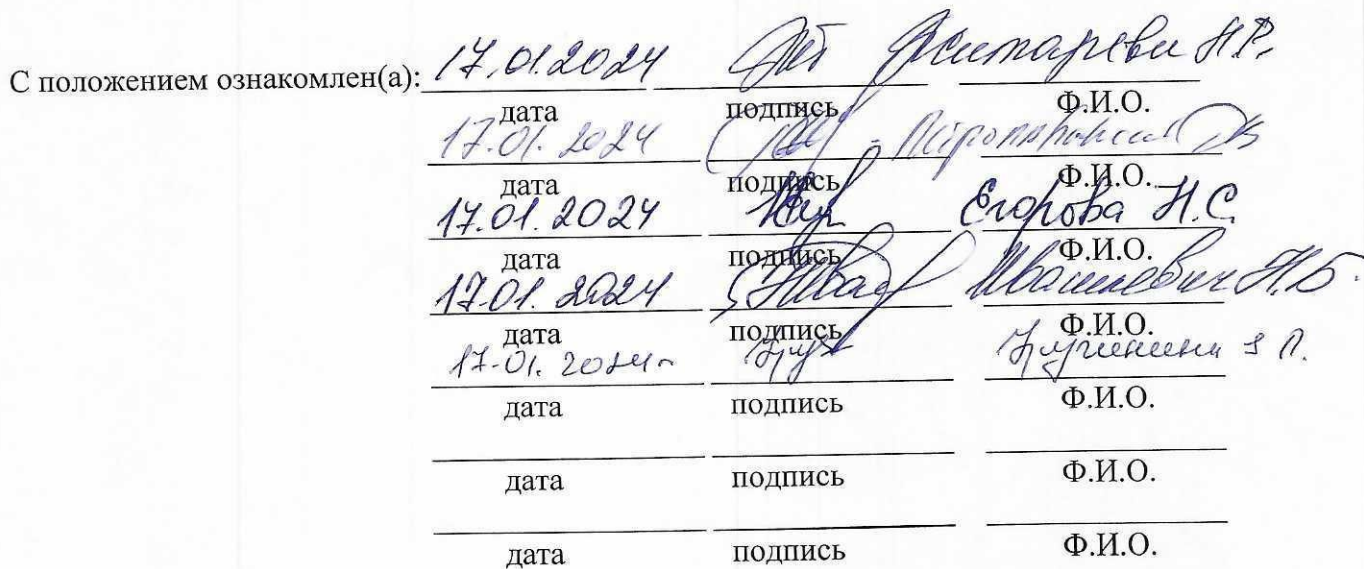 С положением ознакомлен(а): 17.01.2024 Н.Р.
дата подпись Ф.И.О.
17.01.2024
дата подпись Ф.И.О.
17.01.2024 Егорова Н.С.
дата подпись Ф.И.О.
17.01.2024 Ивашкевич Н.Б.
дата подпись Ф.И.О.
17.01.2024г
дата подпись Ф.И.О.
дата подпись Ф.И.О.
дата подпись Ф.И.О.